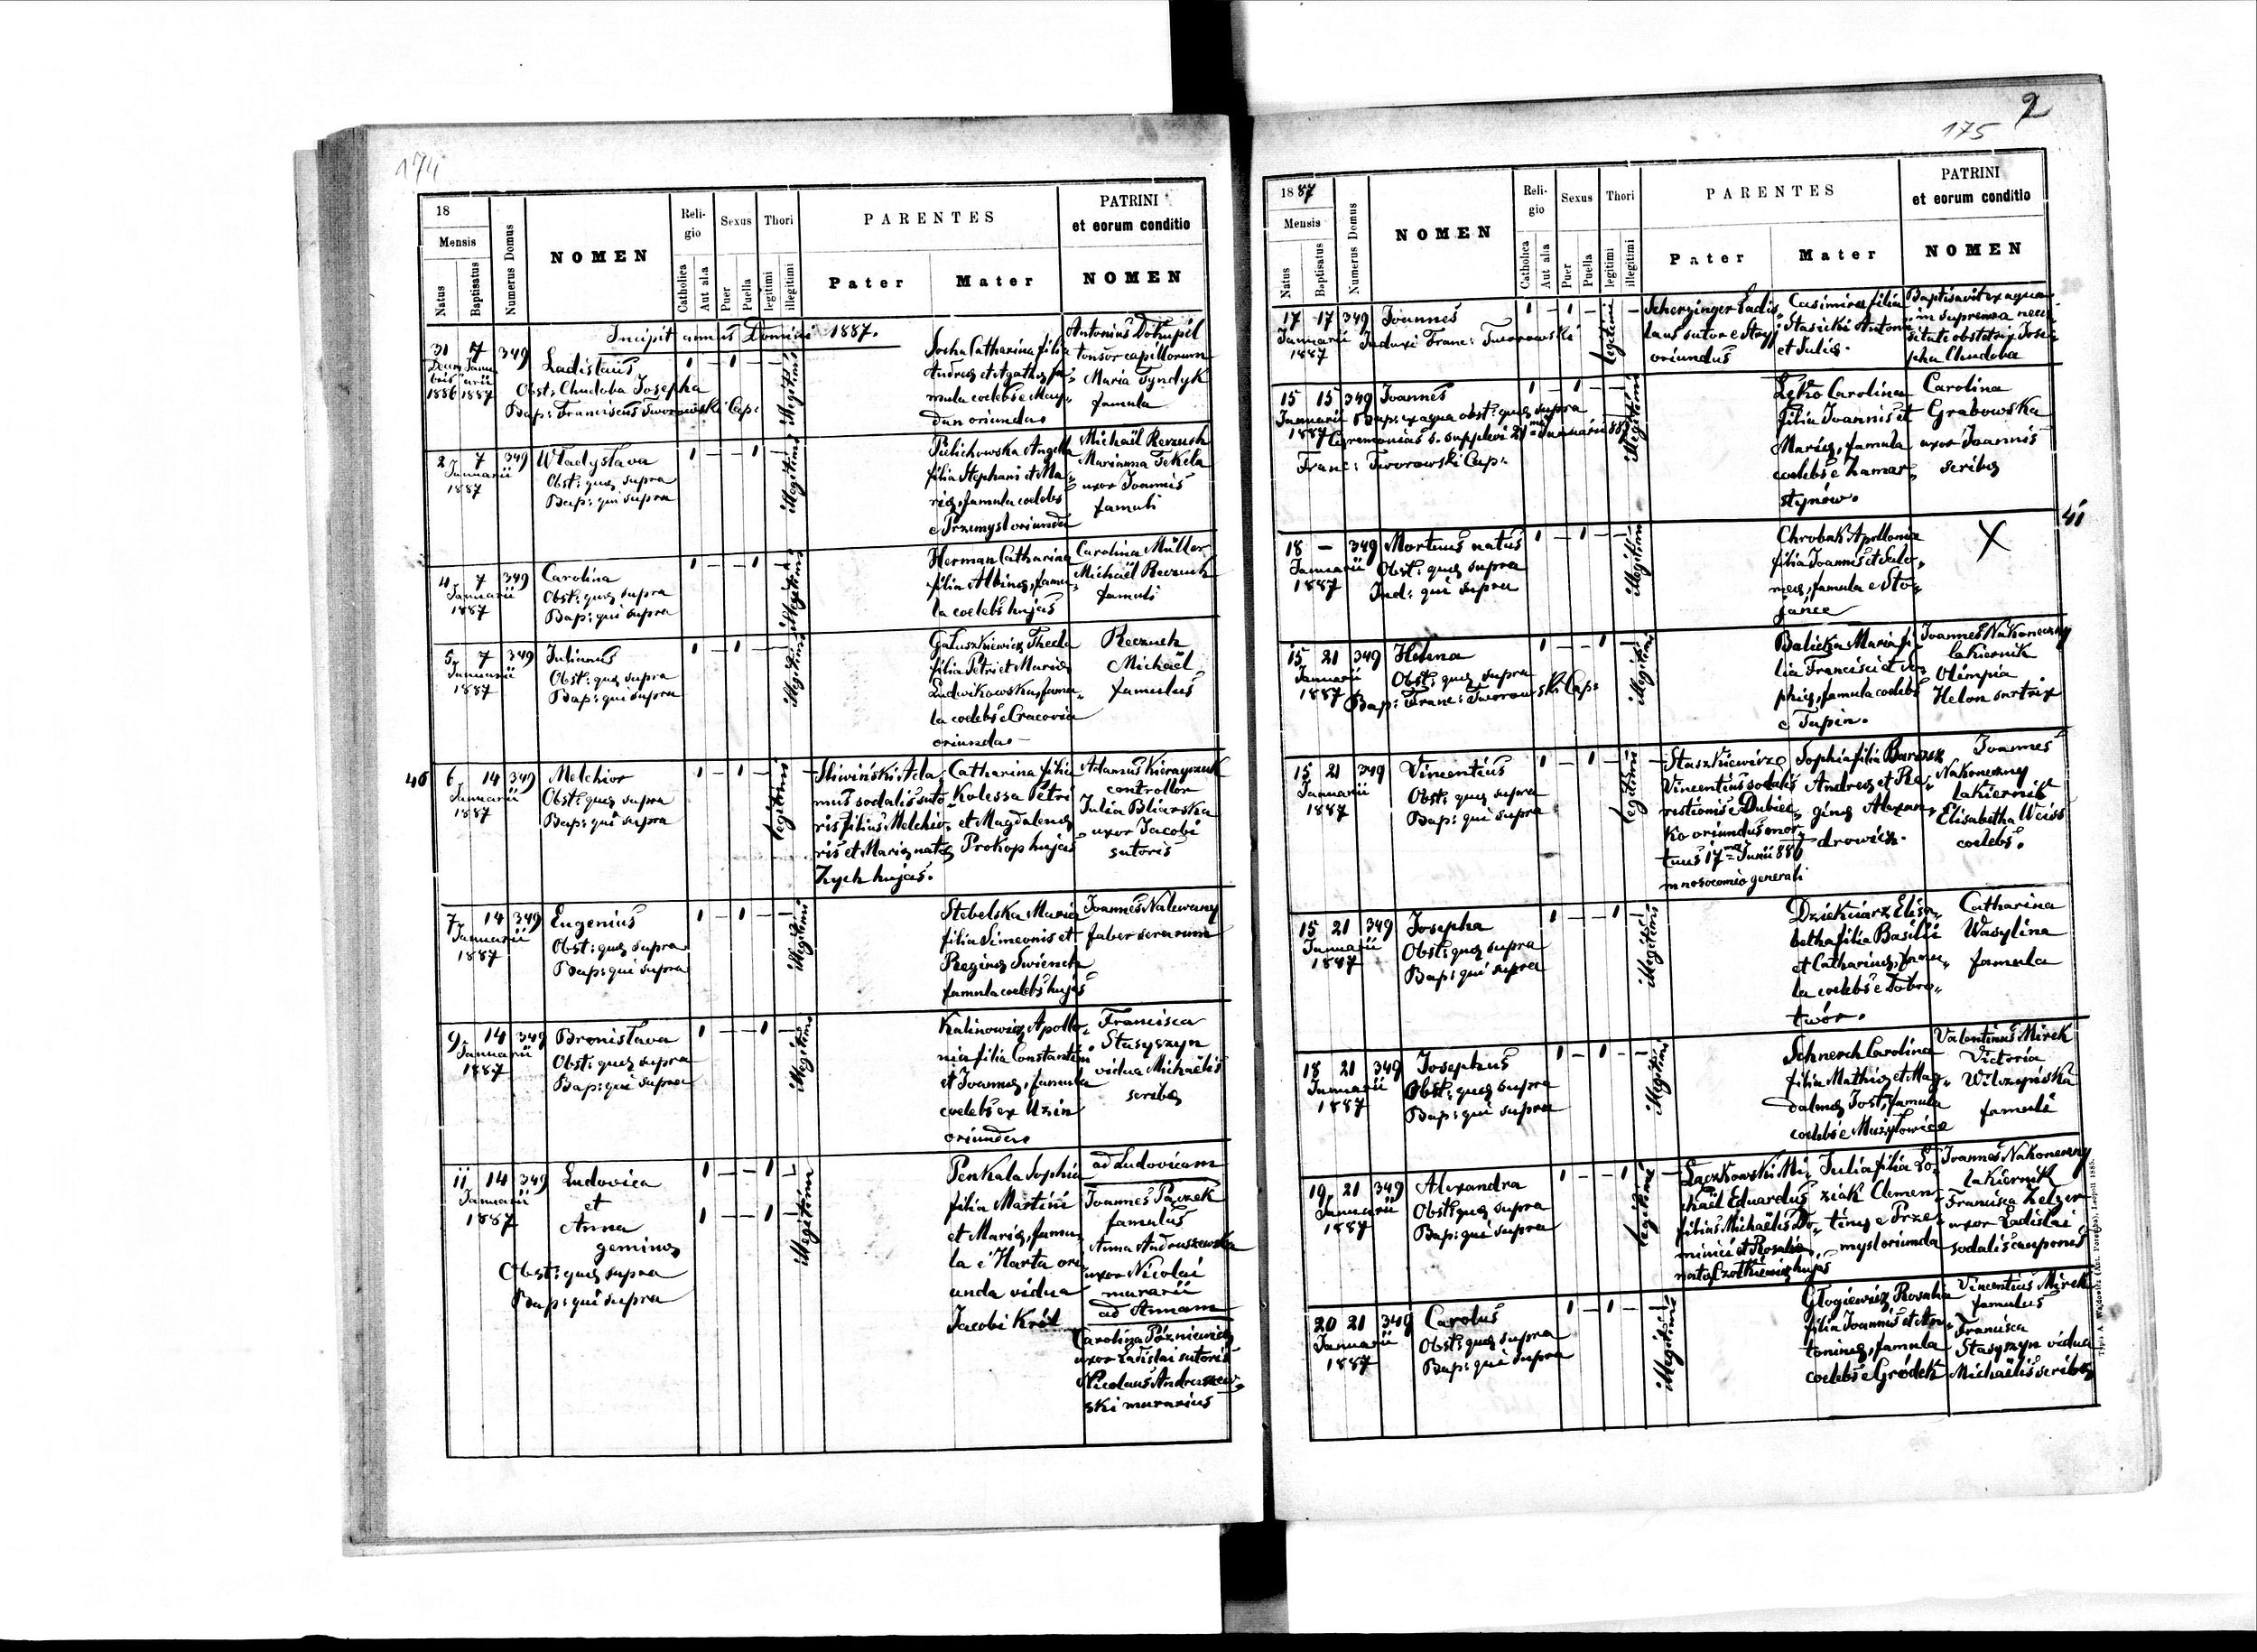 174
18
Mensis
Natus
Baptisatus
Numerus Domus
NOMEN
Religio
Catholica
Aut alia
Sexus
Puer
Puella
Thori
legitimi
illegitimi
PARENTES
Pater
Mater
PATRINI
et eorum conditio
NOMEN
Incipit annus Domini 1887.
31 7 349
Decembris Januarii
1886 1887
Ladislaus
Obst: Chudoba Josepha
Bap: Franciscus Tworowski Cap:
1 – 1 – –
illegitimi
Socha Catharina filia
Andreae et Agathae fa-
mula coelebs e Maj-
dan oriunda
Antonius
tonsor capillorum
Maria Tyndyk
famula
2 7 349
Januarii
1887
Władysława
Obst: quae supra
Bap: qui supra
1 – – 1 –
illegitimi
Angela
filia Stephani et Ma-
riae, famula coelebs
e Przemysl oriunda
Michaël Reczuch
Marianna Tekela
uxor Joannis
famuli
4 7 349
Januarii
1887
Carolina
Obst: quae supra
Bap: qui supra
1 – – 1 –
illegitimi
Herman Catharina
filia Albinae, famu-
la coelebs hujas
Carolina Müller
Michaël Reczuch
famuli
5 7 349
Januarii
1887
Julianus
Obst: quae supra
Bap: qui supra
1 – 1 – –
illegitimi
Gałuszkiewicz Thecla
filia Petri et Mariae
Ludwikowska, famu-
la coelebs e Cracovia
oriunda
Reczuch
Michaël
famulus
40
6 14 349
Januarii
1887
Melchior
Obst: quae supra
Bap: qui supra
1 – 1 –
legitimi
–
Sliwiński Ada-
mus sodalis suto-
ris filius Melchio-
ris et Mariae natae
Zych hujas.
Catharina filia
Kolessa Petri
et Magdalenae
Prokop hujas
Adamus
controllor
Julia
uxor Jacobi
sutoris
7 14 349
Januarii
1887
Eugenius
Obst: quae supra
Bap: qui supra
1 – 1 – –
illegitimi
Stebelska Maria
filia Simeonis et
Reginae Swiench
famula coelebs hujas
Joannes Nalewany
faber serarum
9 14 349
Januarii
1887
Bronisława
Obst: quae supra
Bap: qui supra
1 – – 1 –
illegitimi
Kalinowicz Apollo-
nia filia Constantini
et Joannae, famula
coelebs ex Uzin
oriunda
Francisca
Stasyszyn
vidua Michaëlis
scribae
11 14 349
Januarii
1887
Ludovica
et
Anna
geminae
Obst: quae supra
Bap: qui supra
1 – – 1 –
1 – – 1 –
illegitimi
Penkala Sophia
filia Martini
et Mariae, famu-
la e Harta ori-
unda vidua
Jacobi Król
ad Ludovicam
Joannes Pączek
famulus
Anna Andruszewska
uxor Nicolai
murarii
ad Annam
Carolina Późniewicz
uxor Ladislai sutoris
Nicolaus Andruszew-
ski murarius
2
175
1887
Mensis
Natus
Baptisatus
Numerus Domus
NOMEN
Religio
Catholica
Aut alia
Sexus
Puer
Puella
Thori
legitimi
illegitimi
PARENTES
Pater
Mater
PATRINI
et eorum conditio
NOMEN
17 17 349
Januarii
1887
Joannes
Induxi Franc: Tworowski
1 – 1 –
legitimi
–
Scherzinger Ladis-
laus sutor e Stryj
oriundus
Casimira filia
Stasicki Antoni
et Juliae.
Baptisavit ex aqua
in suprema neces-
sitate obstetrix Jose-
pha Chudoba
15 15 349
Januarii
1887
Joannes
Bap: ex aqua obst: quae supra
Ceremonias s. supplevi 21ma Januarii 887
Franc: Tworowski Cap:
1 – 1 – –
illegitimi
Łęko Carolina
filia Joannis et
Mariae, famula
coelebs e Zamar-
stynów.
Carolina
Grabowska
uxor Joannis
scribae
41
18 – 349
Januarii
1887
Mortuus natus
Obst: quae supra
Ind: qui supra
1 – 1 – –
illegitimi
Chrobak Apollonia
filia Joannis et Salo-
meae, famula e Sto-
jance
X
15 21 349
Januarii
1887
Helena
Obst: quae supra
Bap: Franc: Tworowski Cap:
1 – – 1 –
illegitimi
Balicka Maria fi-
lia Francisci et So-
phiae, famula coelebs
e Tapin.
Joannes Nakoneczny
lakiernik
Olimpia
Helon sartrix
15 21 349
Januarii
1887
Vincentius
Obst: quae supra
Bap: qui supra
1 – 1 –
legitimi
–
Staszkiewicz
Vincentius sodalis
restionis e Dubiec-
ko oriundus mor-
tuus 17ma Junii 886
in nosocomio generali
Sophia filia Barszcz
Andreae et Re-
ginae Alexan-
drowicz.
Joannes
Nakoneczny
Lakiernik
Elisabetha Weiss
coelebs.
15 21 349
Januarii
1887
Josepha
Obst: quae supra
Bap: qui supra
1 – – 1 –
illegitimi
Dziekciarz Elisa-
betha filia Basilii
et Catharinae, famu-
la coelebs e Dobro-
twór.
Catharina
Wasylina
famula
18 21 349
Januarii
1887
Josephus
Obst: quae supra
Bap: qui supra
1 – 1 – –
illegitimi
Schnerch Carolina
filia Mathiae et Mag-
dalenae Jost, famula
coelebs e Mużyłowice
Valentinus Mirek
Victoria
Wilczyńska
famuli
19 21 349
Januarii
1887
Alexandra
Obst: quae supra
Bap: qui supra
1 – – 1
legitimi
–
Łączkowski Mi-
chaël Eduardus
filius Michaëlis Do-
minici et Rosaliae
natae Czołkiewicz hujas
Julia filia Ło-
ziak Clemen-
tinae e Prze-
mysl oriunda
Joannes Nakoneczny
lakiernik
Francisca Zelzer
uxor Ladislai
sodalis cauponis
20 21 349
Januarii
1887
Carolus
Obst: quae supra
Bap: qui supra
1 – 1 – –
illegitimi
Głogiewicz Rosalia
filia Joannis et An-
toninae, famula
coelebs e Gródek
Vincentius Mirek
famulus
Francisca
Stasyszyn vidua
Michaëlis scribae